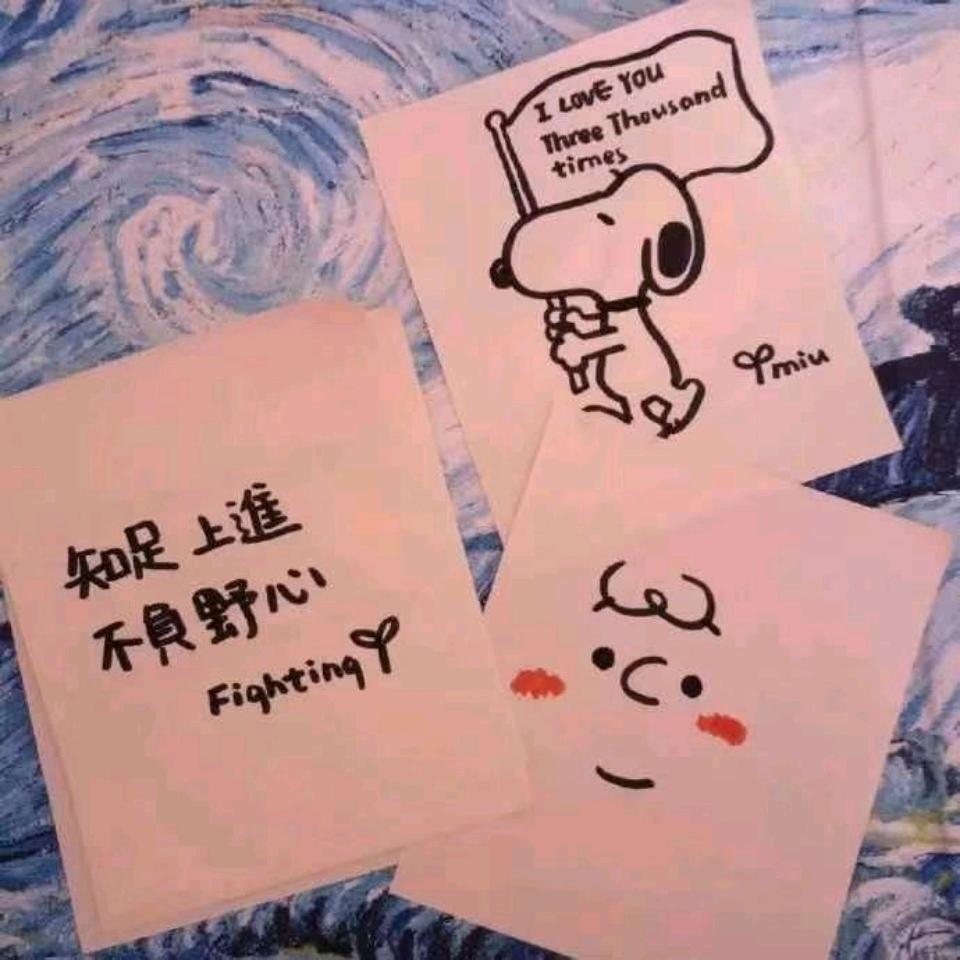 I LOVE YOU
Three Thousand
times
miu
知足 上進
不負野心
Fighting